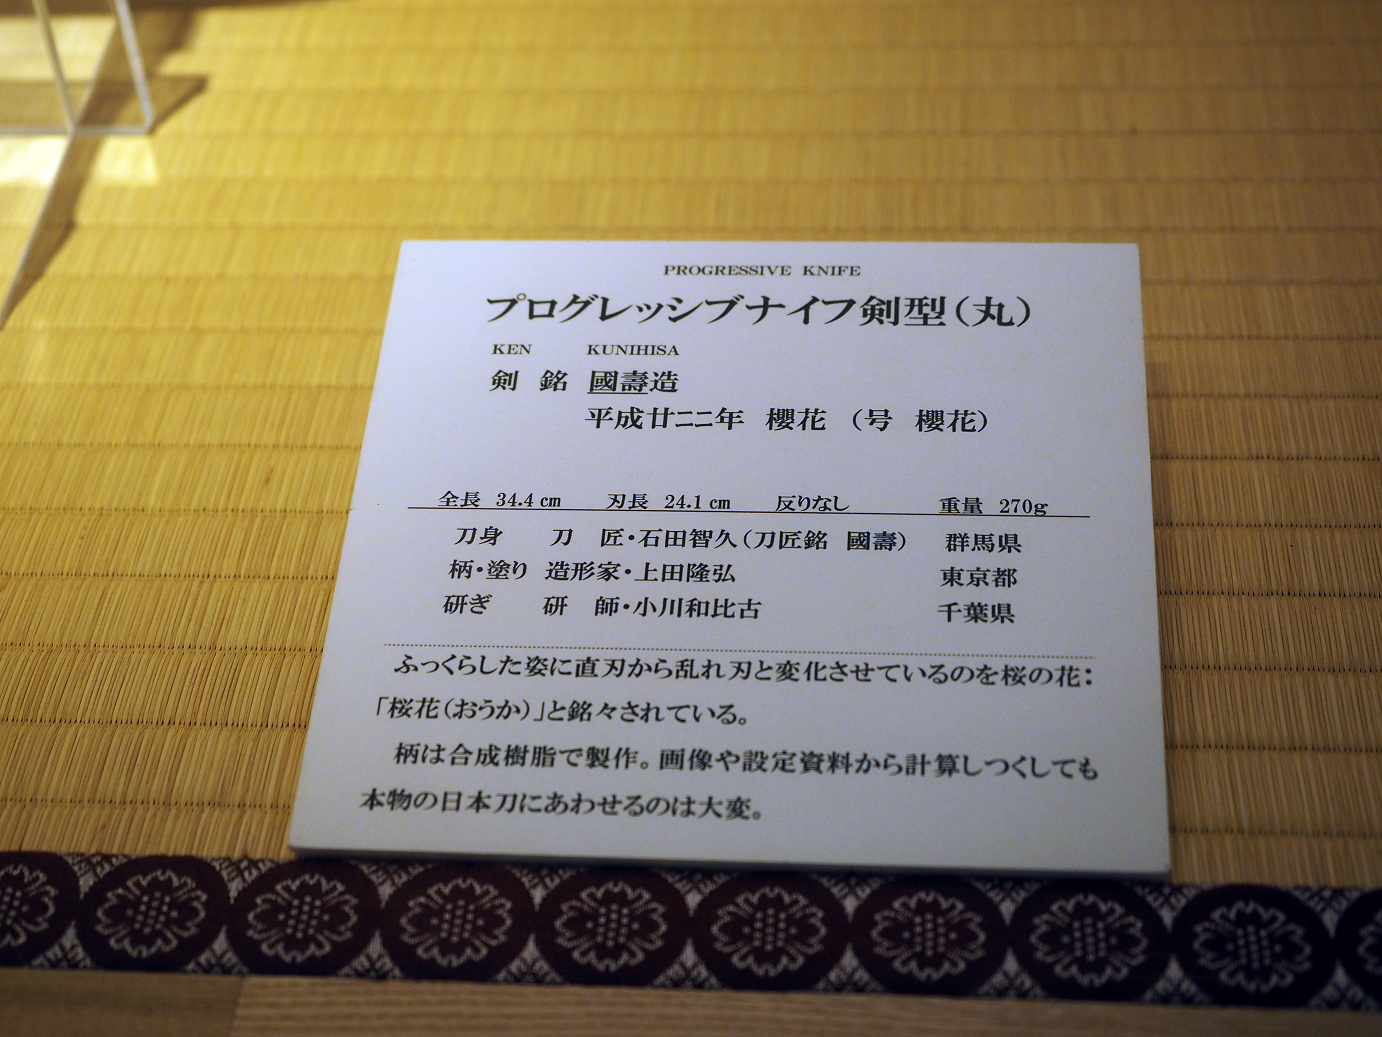 PROGRESSIVE KNIFE
プログレッシブナイフ剣型（丸）
KEN KUNIHISA
剣 銘 國壽造
平成廿二二年 櫻花 （号 櫻花）
全長 34.4㎝ 刃長 24.1㎝ 反りなし 重量 270g
刀身 刀 匠・石田智久（刀匠銘 國壽） 群馬県
柄・塗り 造形家・上田隆弘 東京都
研ぎ 研 師・小川和比古 千葉県
ふっくらした姿に直刃から乱れ刃と変化させているのを桜の花：
「桜花（おうか）」と銘々されている。
柄は合成樹脂で製作。画像や設定資料から計算しつくしても
本物の日本刀にあわせるのは大変。